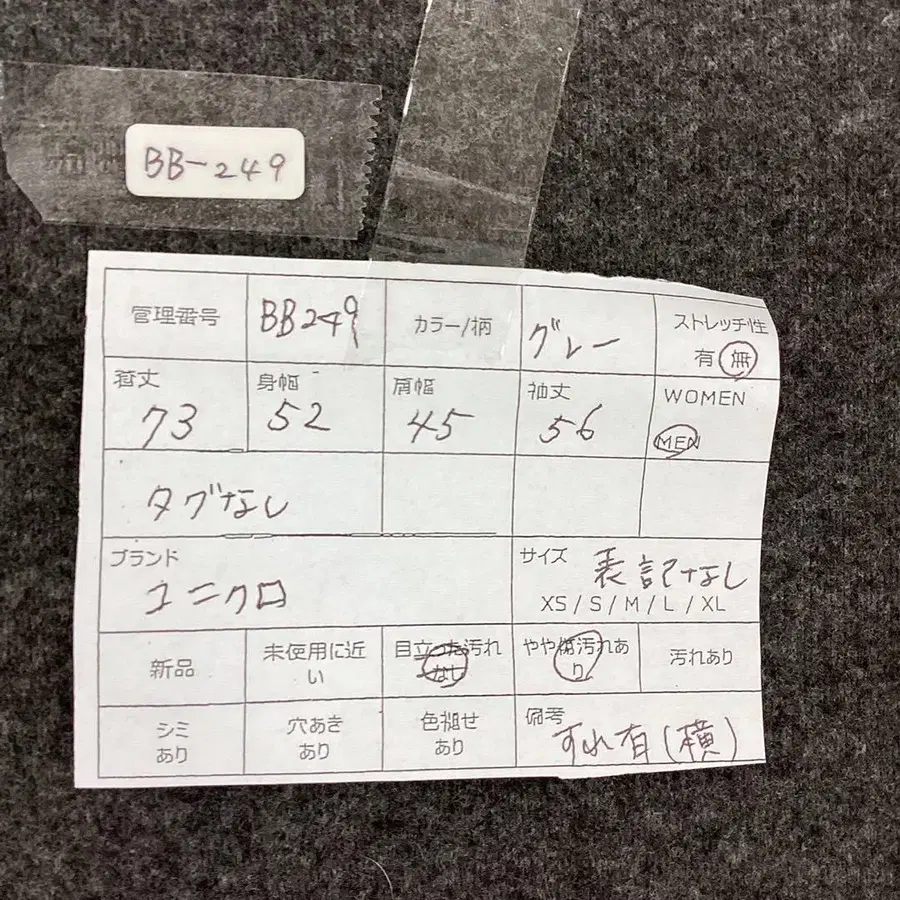 BB-249
管理番号 BB249 カラー/柄 グレー ストレッチ性
有 無
着丈 身幅 肩幅 袖丈 WOMEN
73 52 45 56 MEN
タグなし
ブランド サイズ 表記なし
ユニクロ XS / S / M / L / XL
新品 未使用に近い 目立った汚れなし やや傷汚れあり 汚れあり
シミあり 穴あきあり 色褪せあり 備考
すれ有(横)